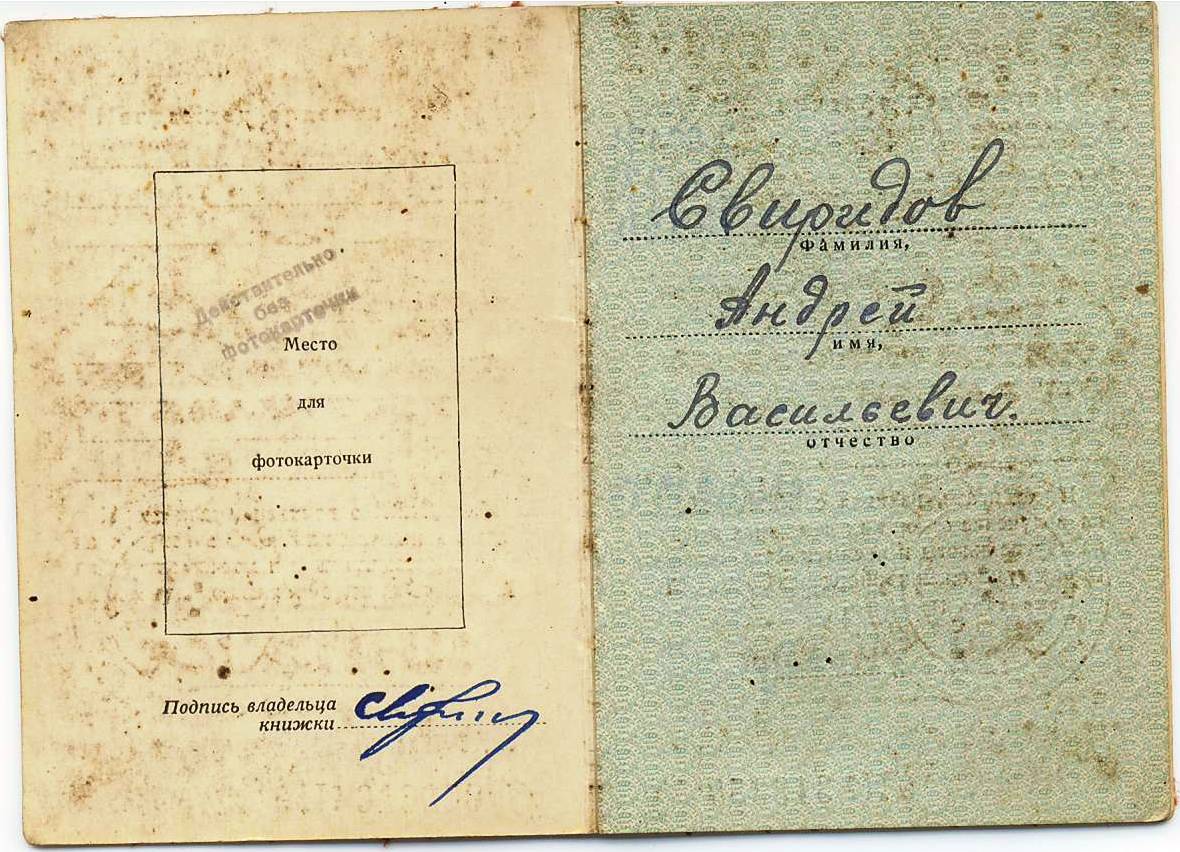 Действительно
без
фотокарточки
Место
для
фотокарточки
Подпись владельца
книжки
Свиридов
фамилия,
Андрей
имя,
Васильевич.
отчество